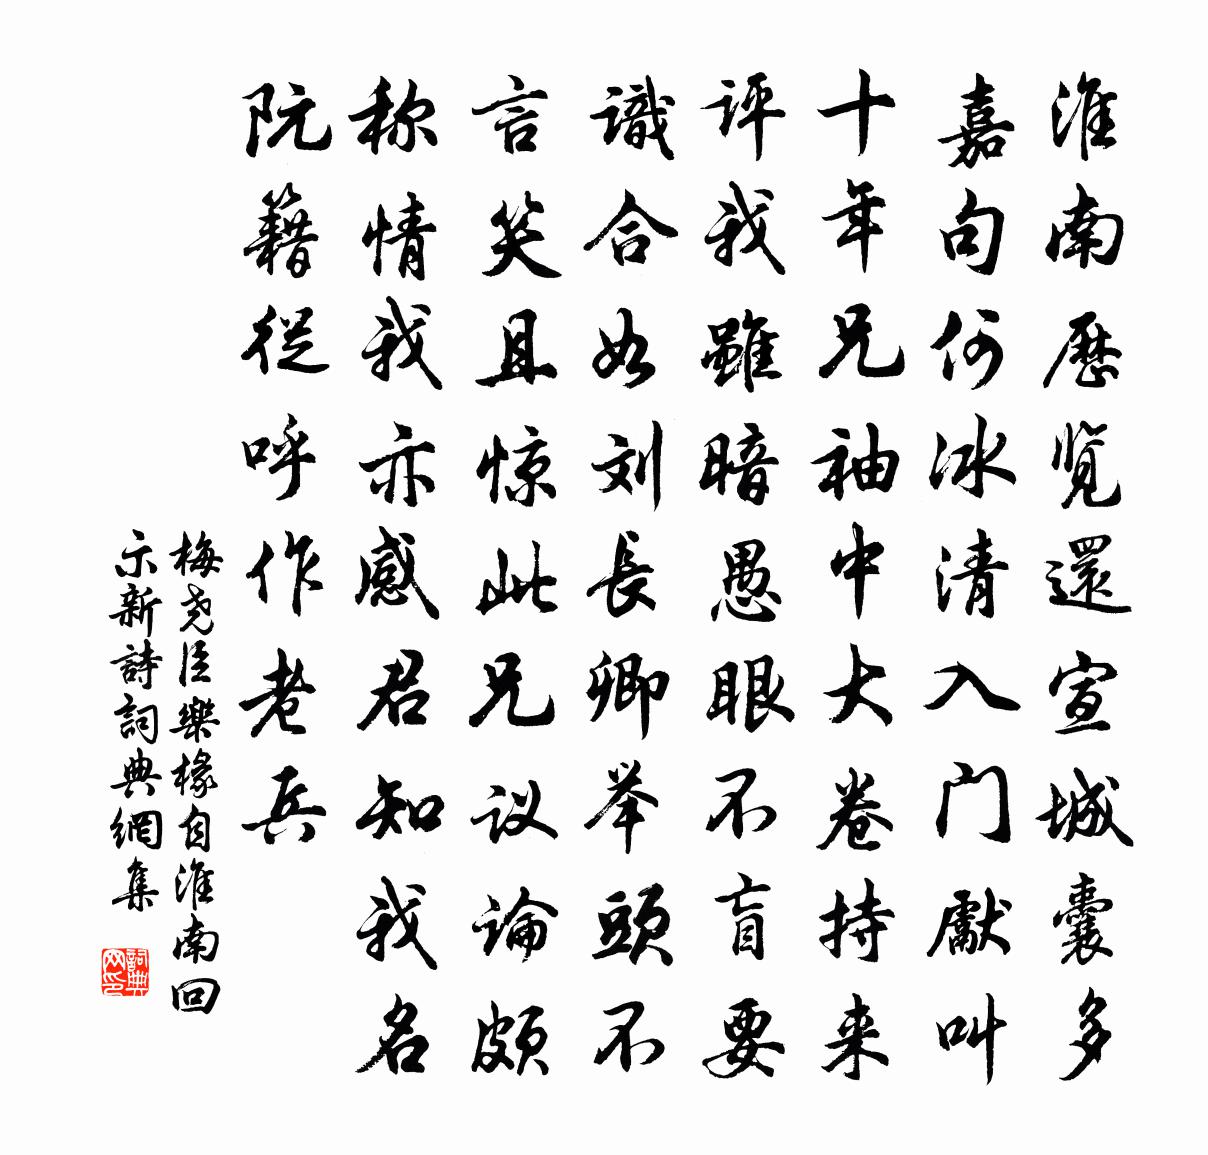 淮南歷览還宣城囊多
嘉句何冰清入门獻叫
十年兄袖中大卷持来
评我雖暗愚眼不盲要
識合如刘長卿举頭不
言笑且惊此兄议论颇
称情我亦感君知我名
阮籍從呼作老兵
梅尧臣樂椽自淮南回
示新詩詞典網集
詞典网印